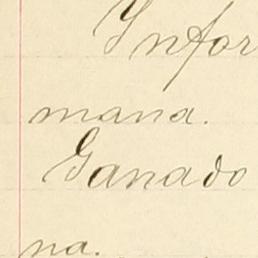 Infor
mana.
Ganado
na.